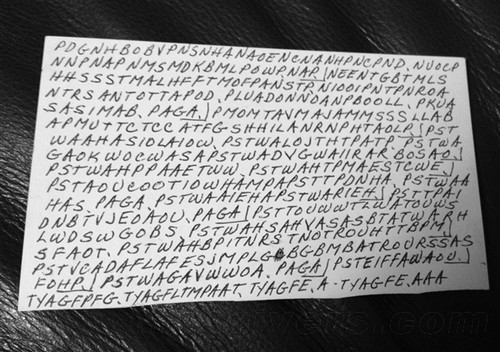 PDGNHBOBVPNSNHANAOENCNANHPNCPND, NUOCP
NNPNAPNMSMDKBMLPOWPNAP) NEENTGBTMLS
HHSSSTMALHFFTMOFPANSTPNIOOIPNTPNROA
NTRSANTOTTAPOD, PLUADONNOANPBOOLL, PKUA
SASIMAB, PAGA) PMOMTAVMAJAMMSSSLLAB
APMUTTCTCCATFGSHHILANRNPHTAOLP) PST
WAAHASIOLAIOW, PSTWALOJTHTPATP, PSTWA
GAOKWOCWASAPSTWADVGWAIIRARBOSAO,)
PSTWAHPPAAETWW, PSTWAHTPMAESTCWE,)
PSTAOUCOOTIOWHAMPAPSTTPDNHA, PSTWAA
HAS, PAGA, PSTWAAIEHAPSTWARIEH) PSTTAI
DNBTVJEOAOU, PAGA) PSTTOUWWTLWATOUWS
LWDSWGOBS, PSTWAHSAHVASASBTATWARH
SFAOT, PSTWAHBPITNRSTNOTROUHTTBPM,
PSTVCADAFLAFESJMPLGBGBMBATROURSSAS
FOHP) PSTWAGAVWWOA, PAGA) PSTEIFFAWAOU,
TYAGFPFG, TYAGFLTMPAAT, TYAGFE, A-TYAGFE, AAA